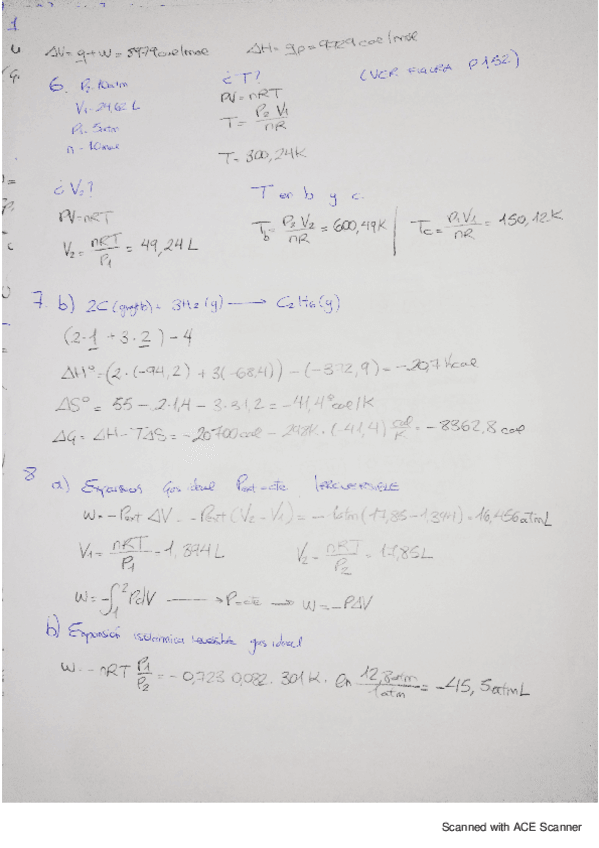 1
ΔU = q+w = 7979 cal/mol ΔH = qp = 9729 cal/mol
6. P2 10atm ¿T? (VER FIGURA P 152)
V1 = 24,62 L PV = nRT
P1 = 5atm T = P2 V1 / nR
n = 10mol
T = 300,24K
¿V2? T en b y c.
PV = nRT
V2 = nRT / P1 = 49,24 L Tb = P2 V2 / nR = 600,49K | Tc = P1 V1 / nR = 150,12K
7. b) 2C (grafito) + 3H2 (g) → C2H6 (g)
(2·1 + 3·2) - 4
ΔHº = (2·(-94,2) + 3(-68,4)) - (-372,9) = -20,7 kcal
ΔSº = 55 - 2·1,4 - 3·31,2 = -41,4 cal/K
ΔG = ΔH - TΔS = -20700cal - 298K·(-41,4) cal/K = -8362,8 cal
8 a) Expansion Gas ideal Pext = cte IRREVERSIBLE
W = -Pext ΔV = -Pext (V2-V1) = -1atm (17,85-1,394) = 16,456atmL
V1 = nRT / P1 = 1,394L V2 = nRT / P2 = 17,85L
W = -∫1 2 PdV → P=cte → W = -PΔV
b) Expansión isotermica reversible gas ideal
W = -nRT P1 / P2 = -0,723 0,082 · 301K · ln 12,8atm / 1atm = -45,5atmL
Scanned with ACE Scanner